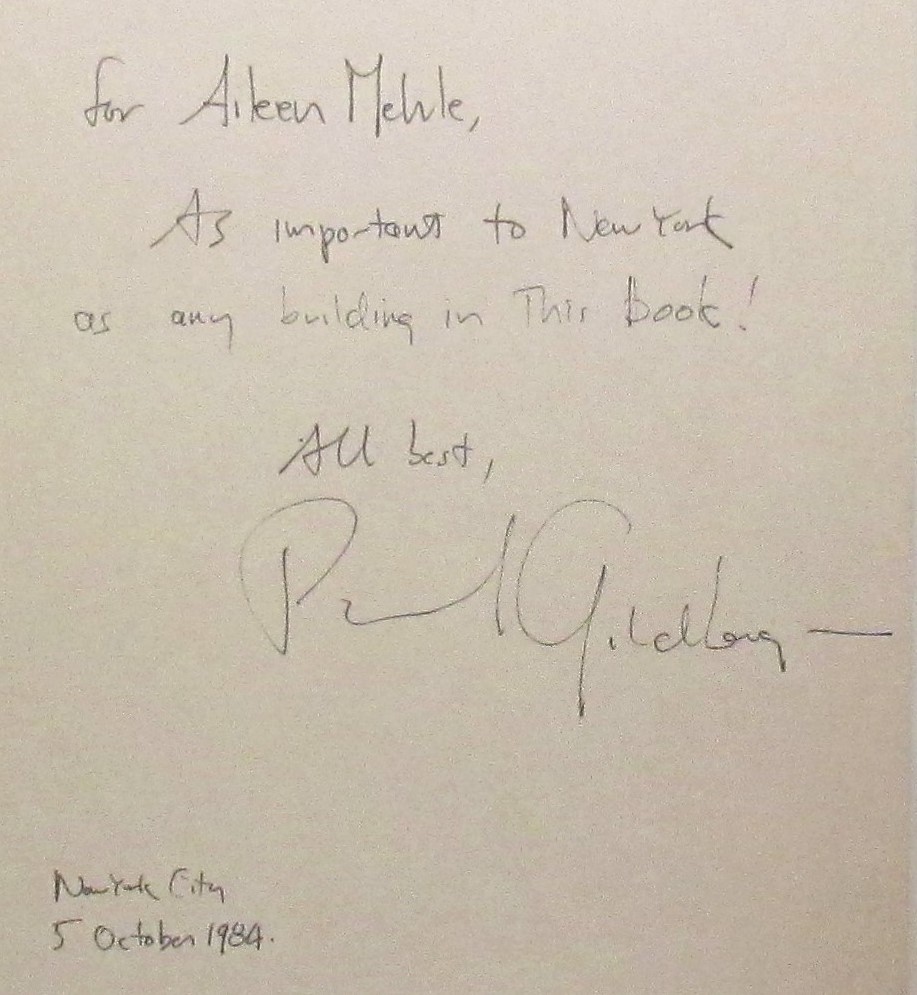 for Aileen Mehle,
As important to New York
as any building in This Book!
All best,
Paul Goldberger
New York City
5 October 1984.